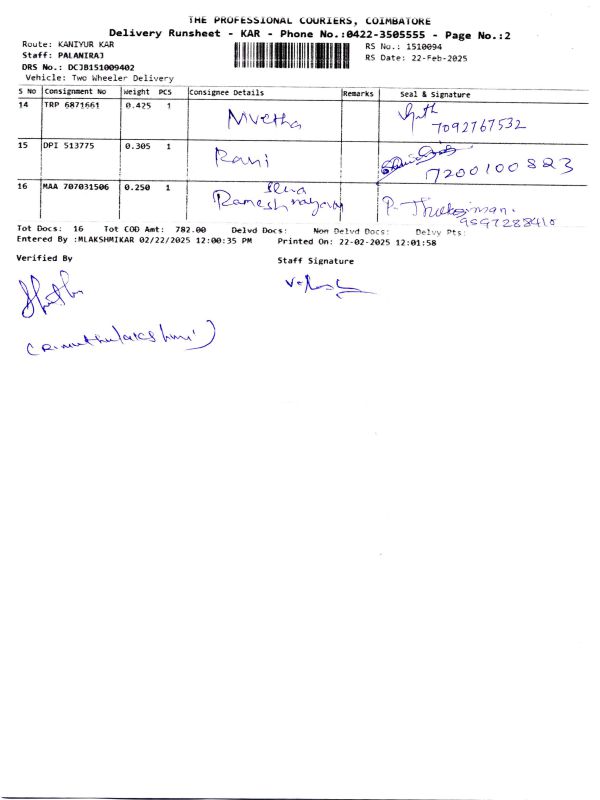 THE PROFESSIONAL COURIERS, COIMBATORE
Delivery Runsheet - KAR - Phone No.:0422-3505555 - Page No.:2
Route: KANIYUR KAR
RS No.: 1510094
Staff: PALANIRAJ
RS Date: 22-Feb-2025
DRS No.: DCJB151009402
Vehicle: Two Wheeler Delivery
S No Consignment No Weight PCS Consignee Details Remarks Seal & Signature
14 TRP 6871661 0.425 1
7092767532
15 DPI 513775 0.305 1 Rani
7200100823
16 MAA 707031506 0.250 1 Ramesh
P.
9597288410
Tot Docs: 16 Tot COD Amt: 782.00 Delvd Docs: Non Delvd Docs: Delvy Pts:
Entered By :MLAKSHMIKAR 02/22/2025 12:00:35 PM Printed On: 22-02-2025 12:01:58
Verified By
Staff Signature